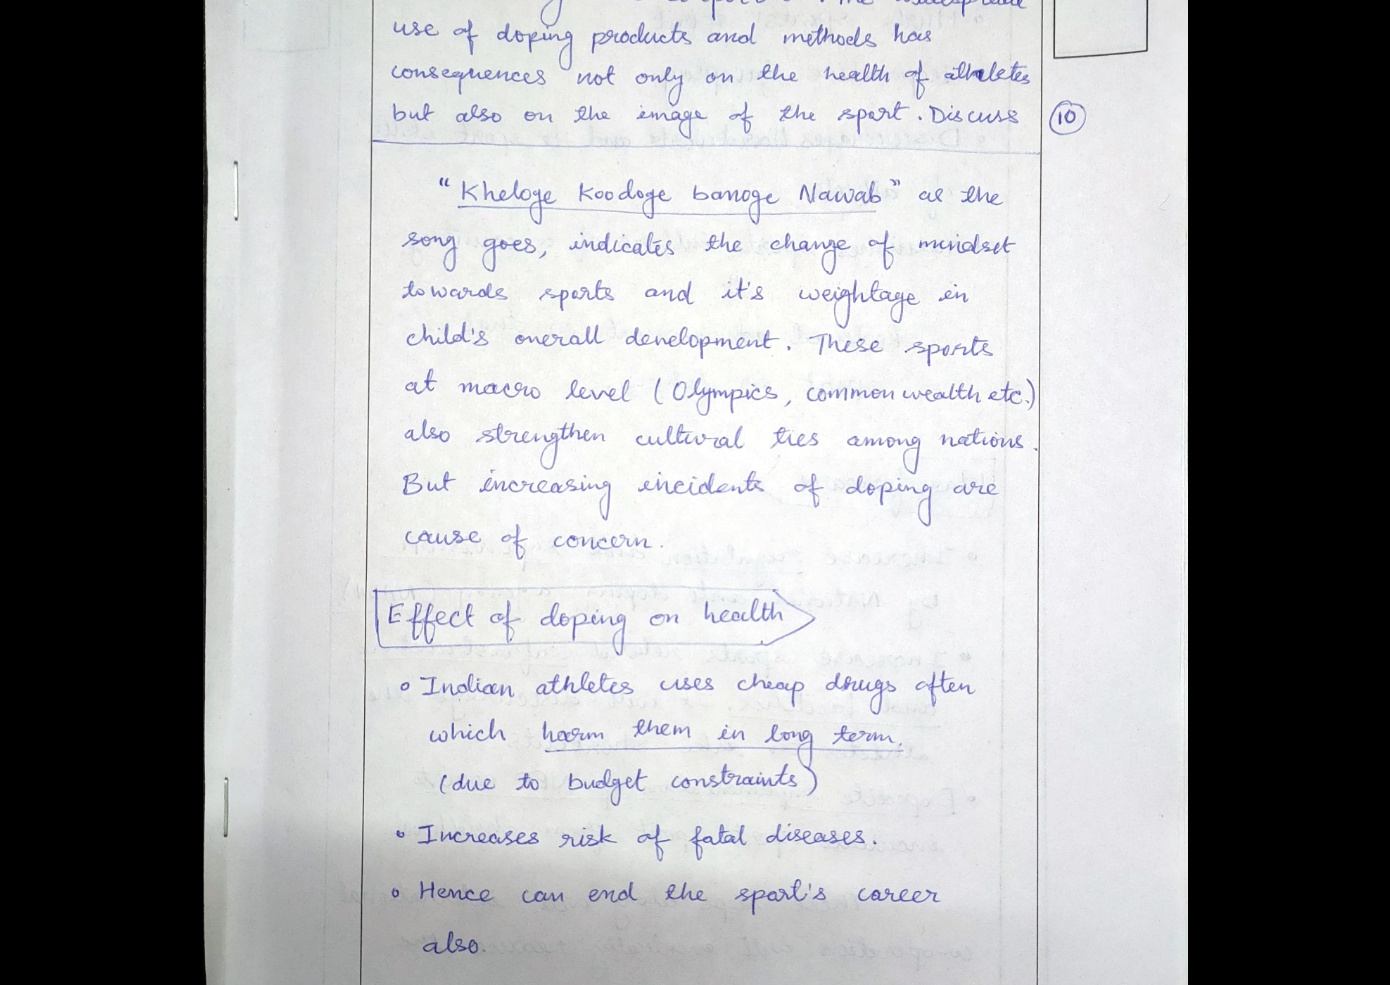 use of doping products and methods has
consequences not only on the health of athletes
but also on the image of the sport. Discuss
10
"Kheloge Koodoge banoge Nawab" as the
song goes, indicates the change of mindset
towards sports and it's weightage in
child's overall development. These sports
at macro level (Olympics, commonwealth etc.)
also strengthen cultural ties among nations.
But increasing incidents of doping are
cause of concern.
Effect of doping on health
• Indian athletes uses cheap drugs often
which harm them in long term.
(due to budget constraints)
• Increases risk of fatal diseases.
• Hence can end the sport's career
also.